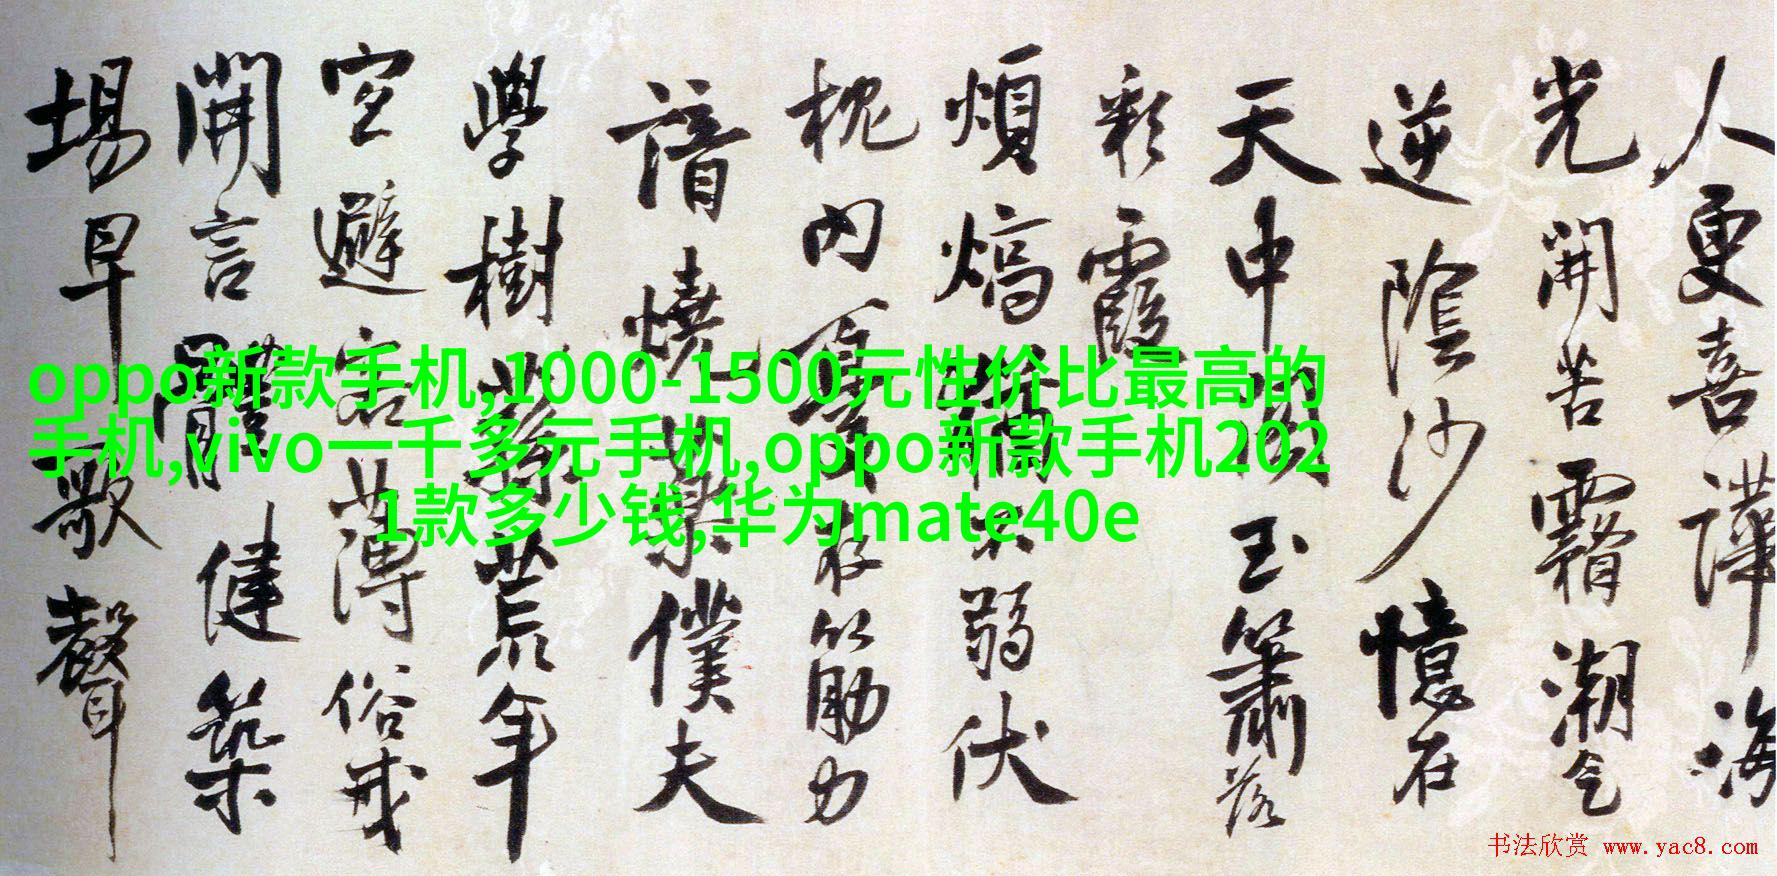 人更喜譁海
光開苦霧潮氣
逆陰沙憶在
天中
玉簫落
彩霞
煩熇
弱伏
枕内
筋力
諳燒
僕夫
學樹
荒年
空避
薄俗或
開言
健築
場早
歌聲
oppo新款手机,1000-1500元性价比最高的
手机,vivo一千多元手机,oppo新款手机202
1款多少钱,华为mate40e
书法欣赏 www.yac8.com